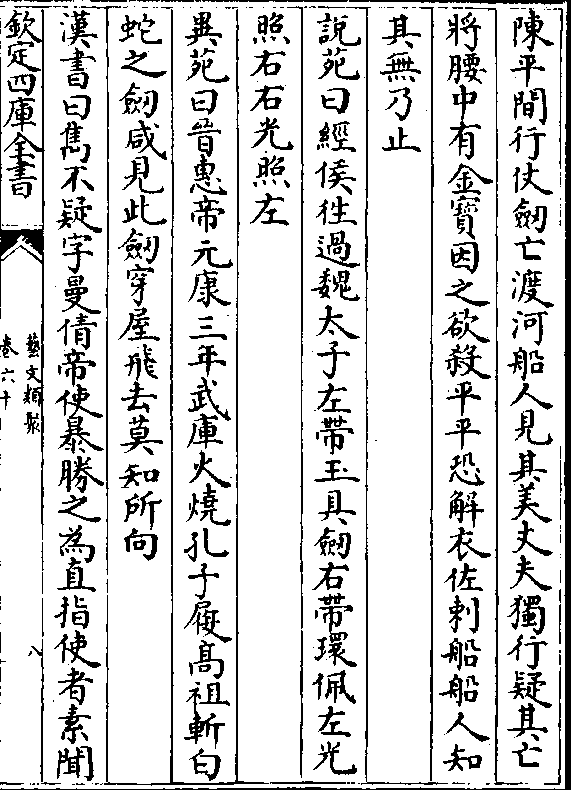 陳平間行仗劒亡渡河船人見其美丈夫獨行疑其亡
將腰中有金寳因之欲殺平平恐解衣佐刺船船人知
其無乃止
說苑曰經侯徃過魏太子左帶玉具劒右帶環佩左光
照右右光照左
異苑曰晉惠帝元康三年武庫火燒孔子履高祖斬白
蛇之劒咸見此劒穿屋飛去莫知所向
漢書曰雋不疑字曼倩帝使暴勝之為直指使者素聞
欽定四庫全書
藝文類聚
卷六十
八